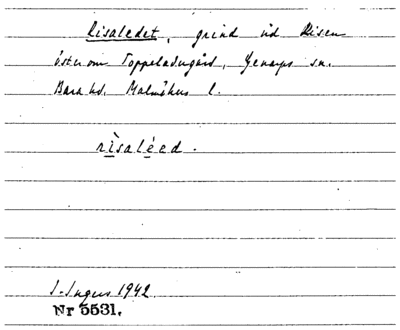 Risaledet, grind vid Risen
öster om Toppeladugård, Genarps sn.
Bara hd. Malmöhus l.
rìsaléed.
1942
Nr 5531.